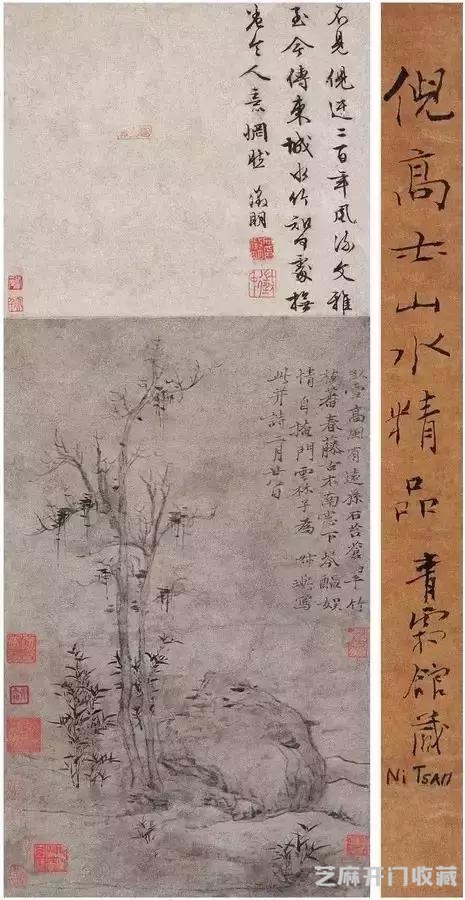 倪高士山水精品 青 館藏
Ni Tsan
不見倪迂二百年風流文雅
至今傳東城水竹知何處撫
卷令人意惘然 徵明
高風有遠孫石苔蒼 竹
春藤古木南窗下琴 娛
情自掩門雲林子為 寫
此并詩二月廿 日
芝麻开门收藏